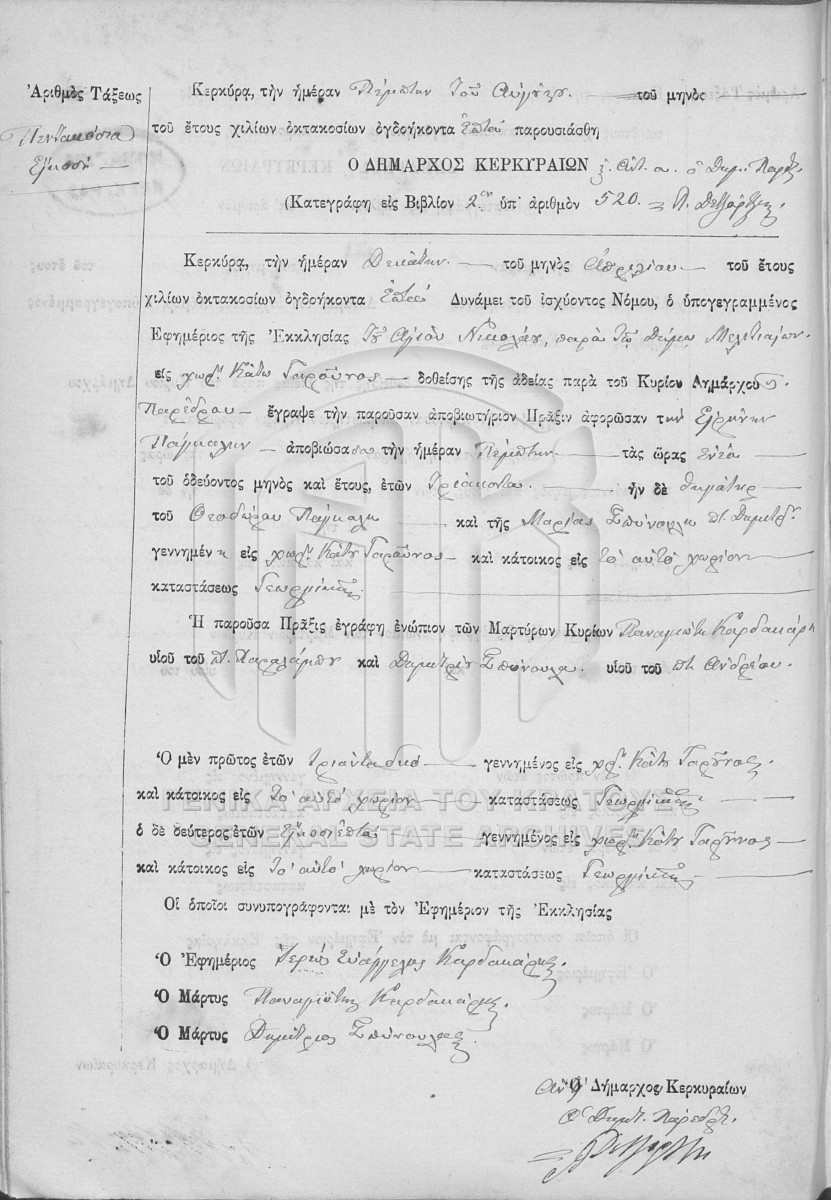 Ἀριθμὸς Τάξεως
Πεντακόσια
Εἴκοσι
Κερκύρᾳ, τὴν ἡμέραν Πέμπτην τοῦ Αὐγούστου τοῦ μηνὸς
τοῦ ἔτους χιλίων ὀκτακοσίων ὀγδοήκοντα Ἑπτά παρουσιάσθη
Ο ΔΗΜΑΡΧΟΣ ΚΕΡΚΥΡΑΙΩΝ
(Κατεγράφη εἰς Βιβλίον 2ον ὑπ' ἀριθμὸν 520.
Κερκύρᾳ, τὴν ἡμέραν Δεκάτην τοῦ μηνὸς Ἀπριλίου τοῦ ἔτους
χιλίων ὀκτακοσίων ὀγδοήκοντα Ἑπτά Δυνάμει τοῦ ἰσχύοντος Νόμου, ὁ ὑπογεγραμμένος
Ἐφημέριος τῆς Ἐκκλησίας Τοῦ Ἁγίου Νικολάου, παρὰ τῷ Δήμῳ Μελιτιαίων
εἰς χωρ. Κάτω Γαροῦνας δοθείσης τῆς ἀδείας παρὰ τοῦ Κυρίου Δημάρχου
Παρέδρου ἔγραψε τὴν παροῦσαν ἀποβιωτήριον Πρᾶξιν ἀφορῶσαν την Εἰρήνην
Πάγκαλην ἀποβιώσασα τὴν ἡμέραν Πέμπτην τὰς ὥρας Ἐνέα
τοῦ ὁδεύοντος μηνὸς καὶ ἔτους, ἐτῶν Τριάκοντα ἦν δὲ θηγάτηρ
τοῦ Θεοδώρου Πάγκαλη καὶ τῆς Μαρίας Σπύνουλα π. Δημητρ.
γεννημένη εἰς χωρ. Κάτω Γαροῦνας καὶ κάτοικος εἰς τὸ αὐτὸ χωρίον
καταστάσεως Γεωργικῆς
Ἡ παροῦσα Πρᾶξις ἐγράφη ἐνώπιον τῶν Μαρτύρων Κυρίων Παναγιώτη Καρδακάρη
υἱοῦ τοῦ π. Χαραλάμπου καὶ Δημητρίου Σπύνουλα υἱοῦ τοῦ π. Ἀνδρέου.
Ὁ μὲν πρῶτος ἐτῶν τριάντα δύο γεννημένος εἰς χωρ. Κάτω Γαρούνας
καὶ κάτοικος εἰς το αὐτὸ χωρίον καταστάσεως Γεωργικῆς
ὁ δὲ δεύτερος ἐτῶν Εἴκοσι ἑπτά γεννημένος εἰς χωρ. Κάτω Γαρούνας
καὶ κάτοικος εἰς το αὐτὸ χωρίον καταστάσεως Γεωργικῆς
Οἱ ὁποῖοι συνυπογράφονται μὲ τὸν Ἐφημέριον τῆς Ἐκκλησίας
Ὁ Ἐφημέριος Ἱερεὺς Εὐάγγελος Καρδακάρης
Ὁ Μάρτυς Παναγιώτης Καρδακάρης
Ὁ Μάρτυς Δημήτριος Σπύνουλας
Ὁ Δήμαρχος Κερκυραίων
Ὁ Δημ. Πάρεδρ.
ΓΕΝΙΚΑ ΑΡΧΕΙΑ ΤΟΥ ΚΡΑΤΟΥΣ
GENERAL STATE ARCHIVES